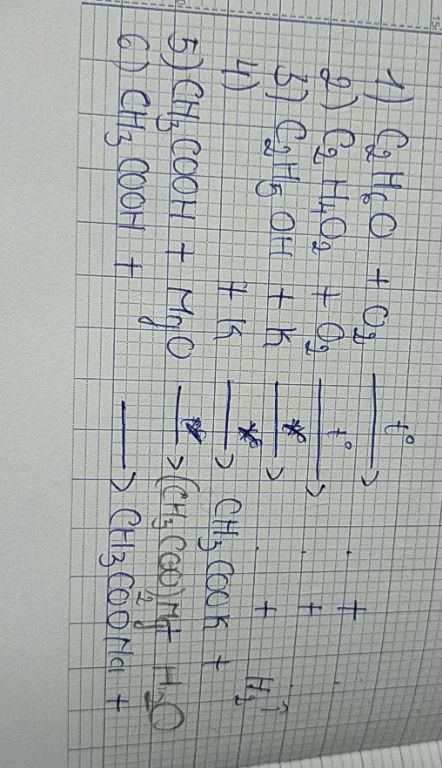 1) C₂H₆O + O₂ —t°→ +
2) C₂H₄O₂ + O₂ —t°→ +
3) C₂H₅OH + K → + H₂↑
4) + K → CH₃COOK +
5) CH₃COOH + MgO → (CH₃COO)₂Mg + H₂O
6) CH₃COOH + → CH₃COONa +